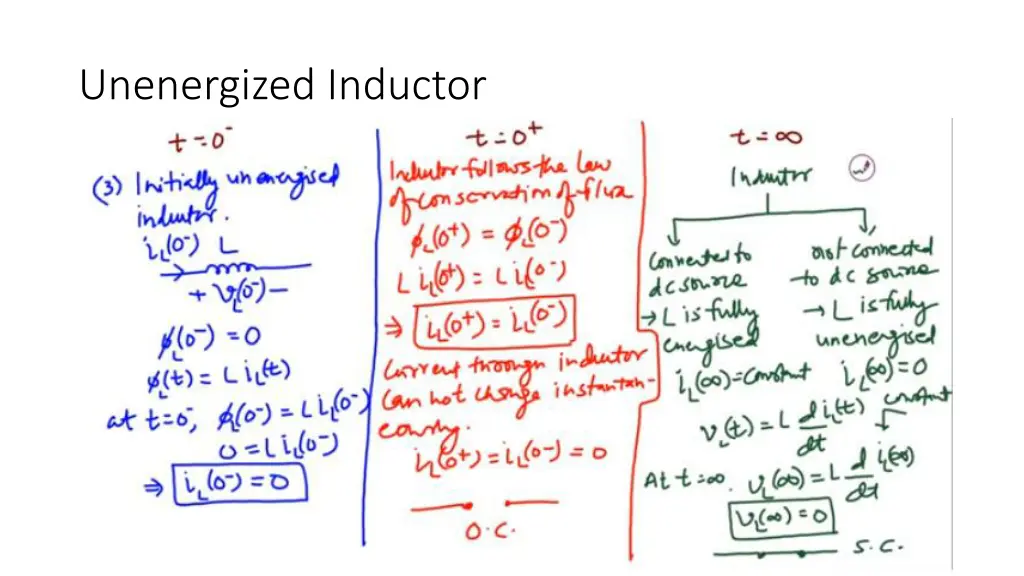 Unenergized Inductor
t=0⁻
(3) Initially unenergised
inductor.
i_L(0⁻) L
+ V_L(0⁻) −
ϕ_L(0⁻) = 0
ϕ_L(t) = L i_L(t)
at t=0⁻, ϕ_L(0⁻) = L i_L(0⁻)
0 = L i_L(0⁻)
⇒ i_L(0⁻) = 0
t=0⁺
Inductor follows the law
of conservation of flux
ϕ_L(0⁺) = ϕ_L(0⁻)
L i_L(0⁺) = L i_L(0⁻)
⇒ i_L(0⁺) = i_L(0⁻)
Current through inductor
can not change instantan-
eously.
i_L(0⁺) = i_L(0⁻) = 0
O.C.
t=∞
Inductor
connected to
dc source
→ L is fully
energised
i_L(∞) = constant
not connected
to dc source
→ L is fully
unenergised
i_L(∞) = 0
constant
V_L(t) = L d i_L(t)
dt
At t=∞. V_L(∞) = L d i_L(∞)
dt
V_L(∞) = 0
S.C.